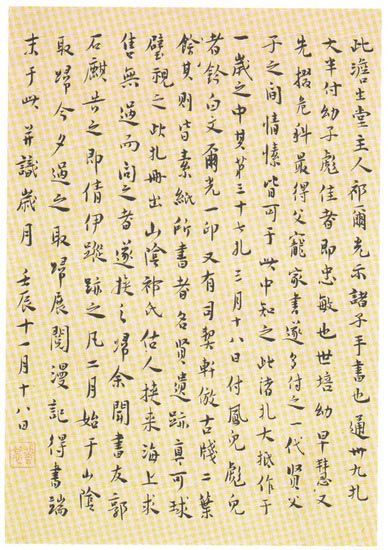 此澹生堂主人祁爾光示諸子手書也通卅九札
大半付幼子彪佳者即忠敏也世培幼早慧又
先掇危科最得父寵家書遂多付之一代賢父
子之間情愫皆可于此中知之此諸札大抵作于
一歲之中其第三十七札三月十八日付鳳兒彪兒
者鈐白文爾光一印又有司契軒倣古牋二葉
餘其則皆素紙所書者名賢遺跡真可球
璧視之此札冊出山陰祁氏估人挾來海上求
售無過而問之者遂挾之歸余聞書友郭
石麒告之即倩伊蹤跡之凡二月始于山陰
取歸今夕過之取歸展閱漫記得書端
末于此并識歲月 壬辰十一月十八日